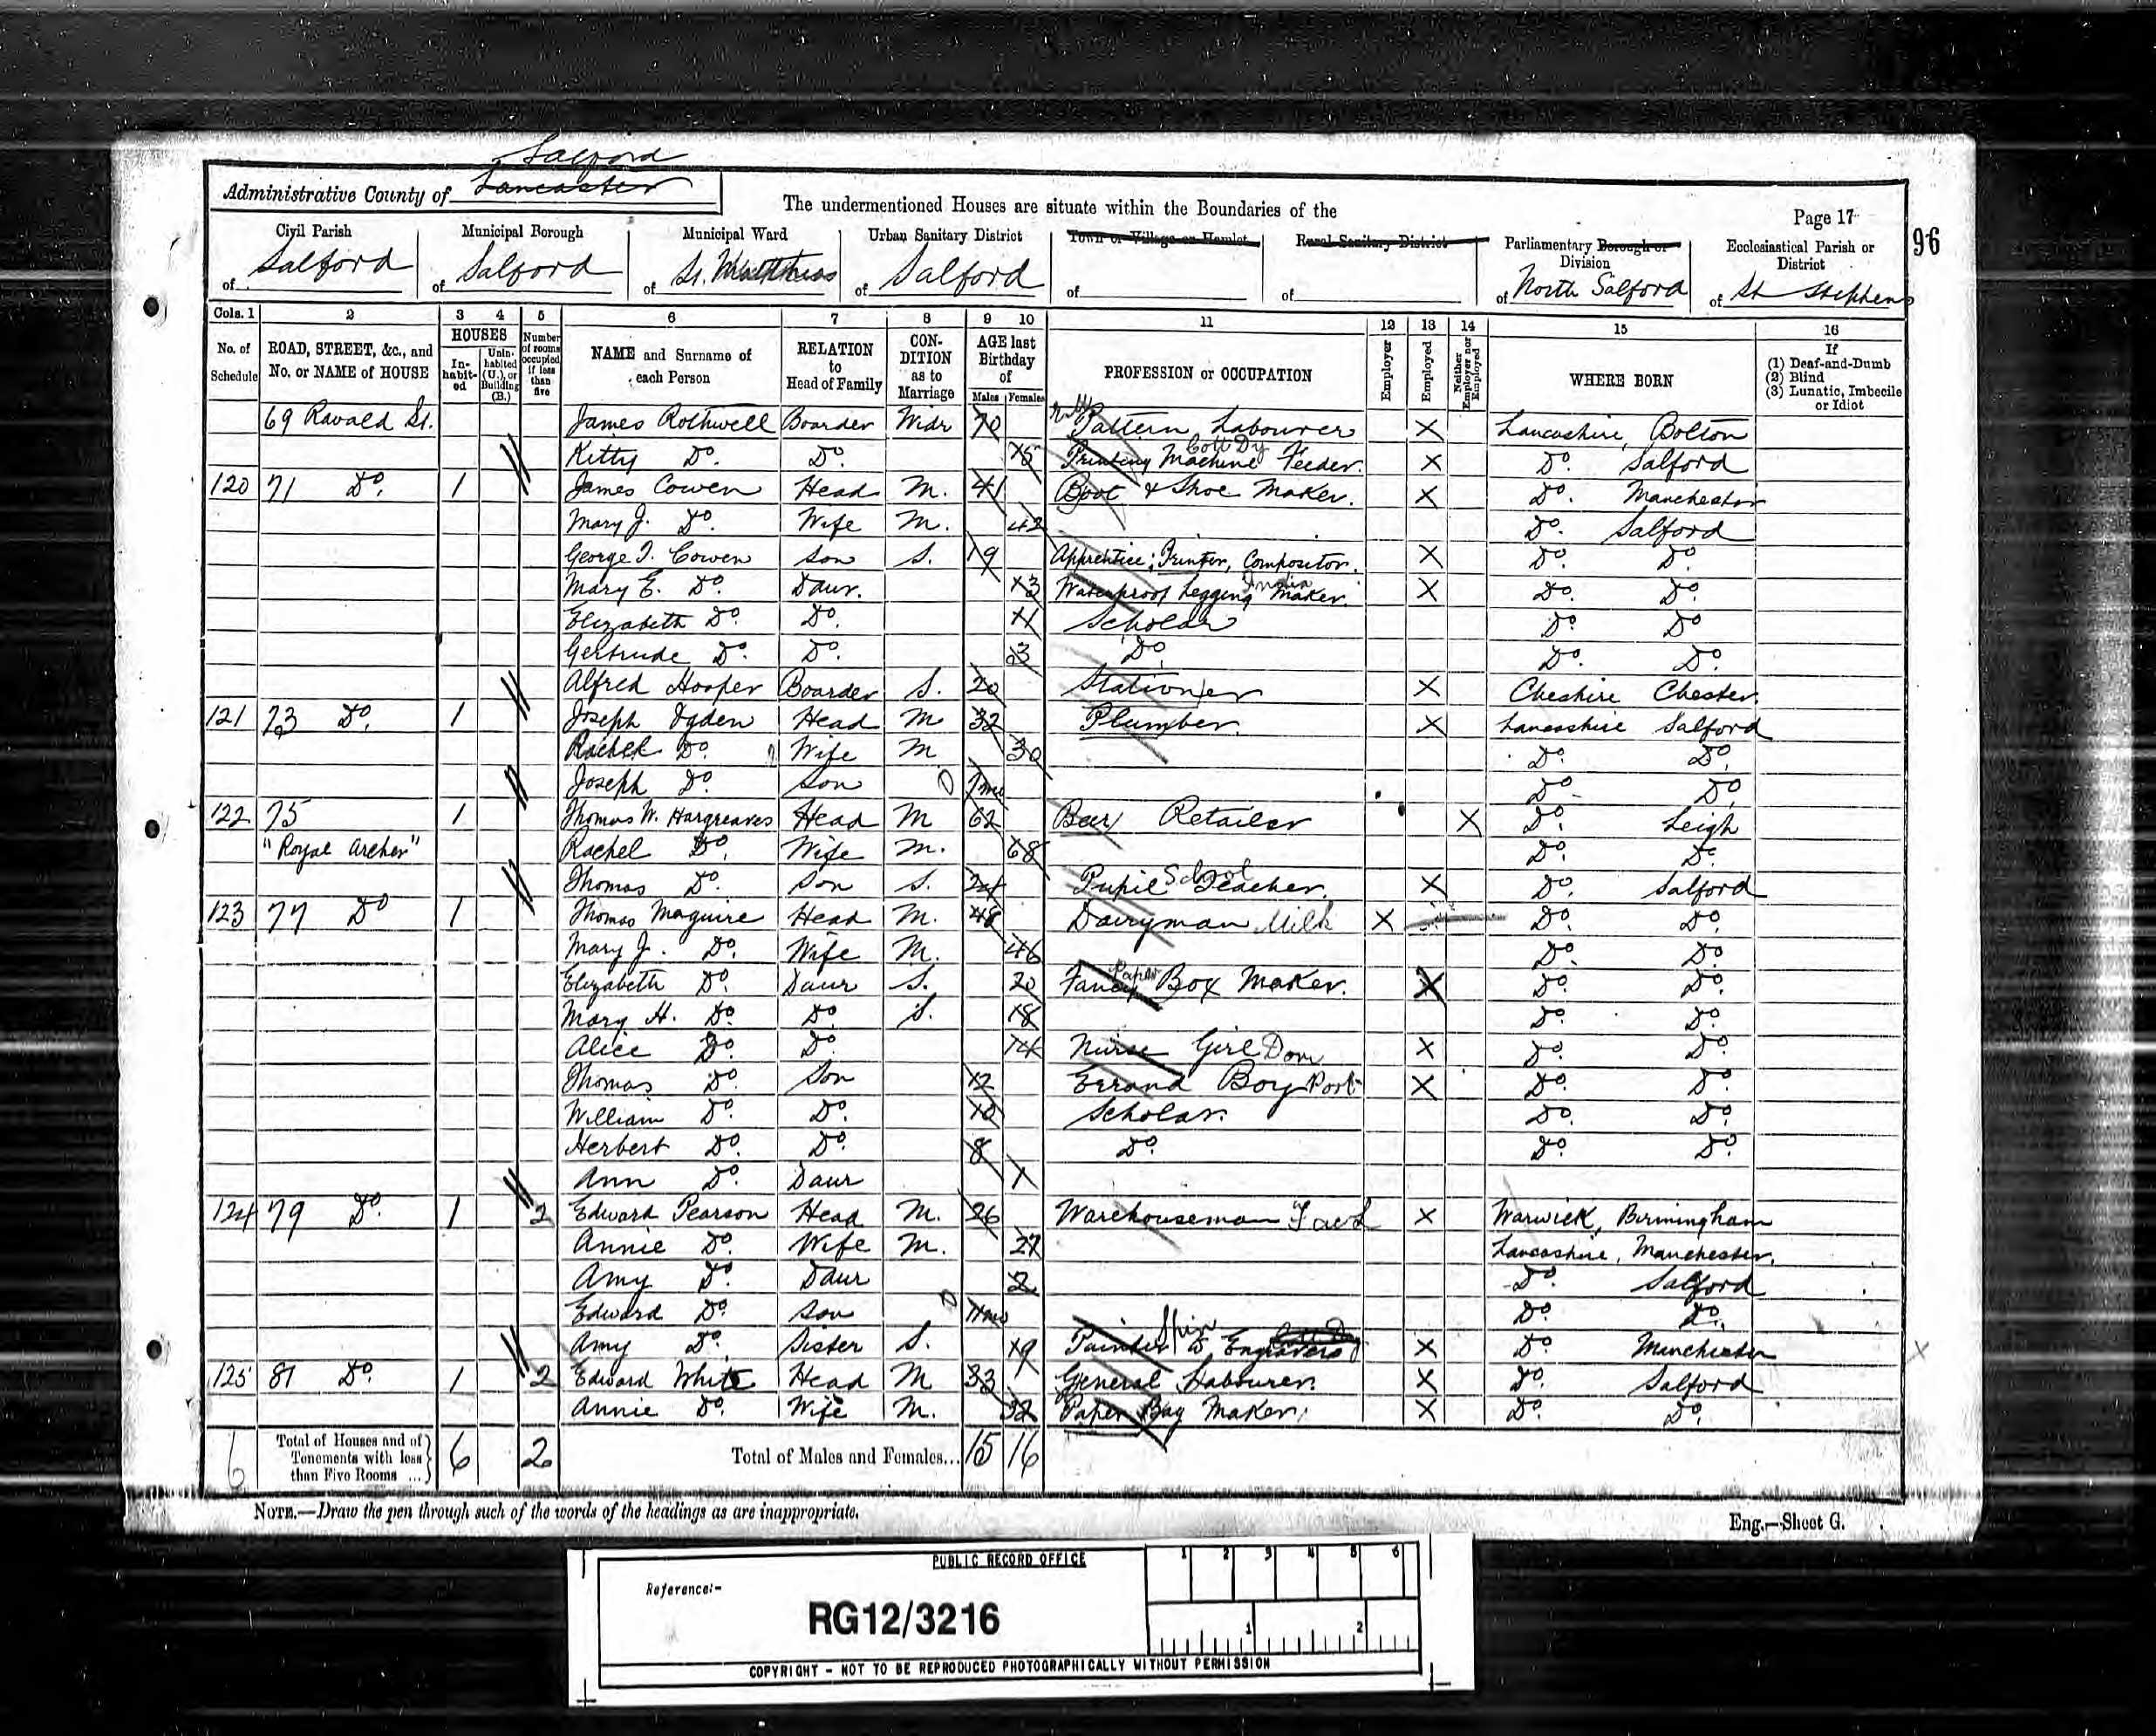 Salford
Administrative County of Lancaster
The undermentioned Houses are situate within the Boundaries of the
Page 17
96
Civil Parish of Salford
Municipal Borough of Salford
Municipal Ward of St. Matthias
Urban Sanitary District of Salford
Town or Village or Hamlet of
Rural Sanitary District of
Parliamentary Borough or Division of North Salford
Ecclesiastical Parish or District of St Stephens
Cols. 1 2 3 4 5 6 7 8 9 10 11 12 13 14 15 16
No. of Schedule
ROAD, STREET, &c., and No. or NAME of HOUSE
HOUSES
In-habit-ed
Unin-habited (U.), or Building (B.)
Number of rooms occupied if less than five
NAME and Surname of each Person
RELATION to Head of Family
CON-DITION as to Marriage
AGE last Birthday of
Males Females
PROFESSION or OCCUPATION
Employer
Employed
Neither Employer nor Employed
WHERE BORN
If (1) Deaf-and-Dumb (2) Blind (3) Lunatic, Imbecile or Idiot
69 Ravald St. James Rothwell Boarder Widr 70 Pattern Labourer X Lancashire, Bolton
Kitty Do. Do. 15 Printing Machine Feeder. X Do. Salford
120 71 Do. 1 James Cowen Head M. 41 Boot & Shoe Maker. X Do. Manchester
Mary J. Do. Wife M. 42 Do. Salford
George T. Cowen Son S. 19 Apprentice; Printer, Compositor. X Do. Do.
Mary E. Do. Daur. 13 Waterproof Legging India Maker. X Do. Do.
Elizabeth Do. Do. 11 Scholar Do. Do
Gertrude Do. Do. 3 Do. Do. Do.
Alfred Hooper Boarder S. 20 Stationer X Cheshire Chester.
121 73 Do. 1 Joseph Ogden Head M 32 Plumber. X Lancashire Salford
Rachel Do. Wife M 30 Do. Do.
Joseph Do. Son 1mo Do. Do.
122 75 1 Thomas W. Hargreaves Head M 62 Beer Retailer X Do. Leigh
"Royal Archer" Rachel Do. Wife M. 68 Do. Do.
Thomas Do. Son S. 24 Pupil School Teacher. X Do. Salford
123 77 Do 1 Thomas Maguire Head M. 48 Dairyman Milk X Do. Do.
Mary J. Do. Wife M. 46 Do. Do.
Elizabeth Do. Daur S. 20 Fancy Paper Box Maker. X Do. Do.
Mary H. Do. Do. S. 18 Do. Do.
Alice Do. Do. 14 Nurse Girl Dom X Do. Do.
Thomas Do. Son 12 Errand Boy Port X Do. Do.
William Do. Do. 10 Scholar. Do. Do.
Herbert Do. Do. 8 Do. Do. Do.
Ann Do. Daur 1
124 79 Do. 1 2 Edward Pearson Head M. 26 Warehouseman X Warwick, Birmingham
Annie Do. Wife M. 27 Lancashire, Manchester.
Amy Do. Daur 2 Do. Salford
Edward Do. Son 11mo Do. Do.
Amy Do. Sister S. 19 Painter to Engravers X Do. Manchester
125 81 Do. 1 2 Edward White Head M 33 General Labourer. X Do. Salford
Annie Do. Wife M. 32 Paper Bag Maker. X Do. Do.
6 Total of Houses and of Tenements with less than Five Rooms ... 6 2 Total of Males and Females... 15 16
NOTE.—Draw the pen through such of the words of the headings as are inappropriate.
Eng.—Sheet G.
PUBLIC RECORD OFFICE
1 2 3 4 5 6
Reference:-
RG12/3216
1 2
COPYRIGHT - NOT TO BE REPRODUCED PHOTOGRAPHICALLY WITHOUT PERMISSION